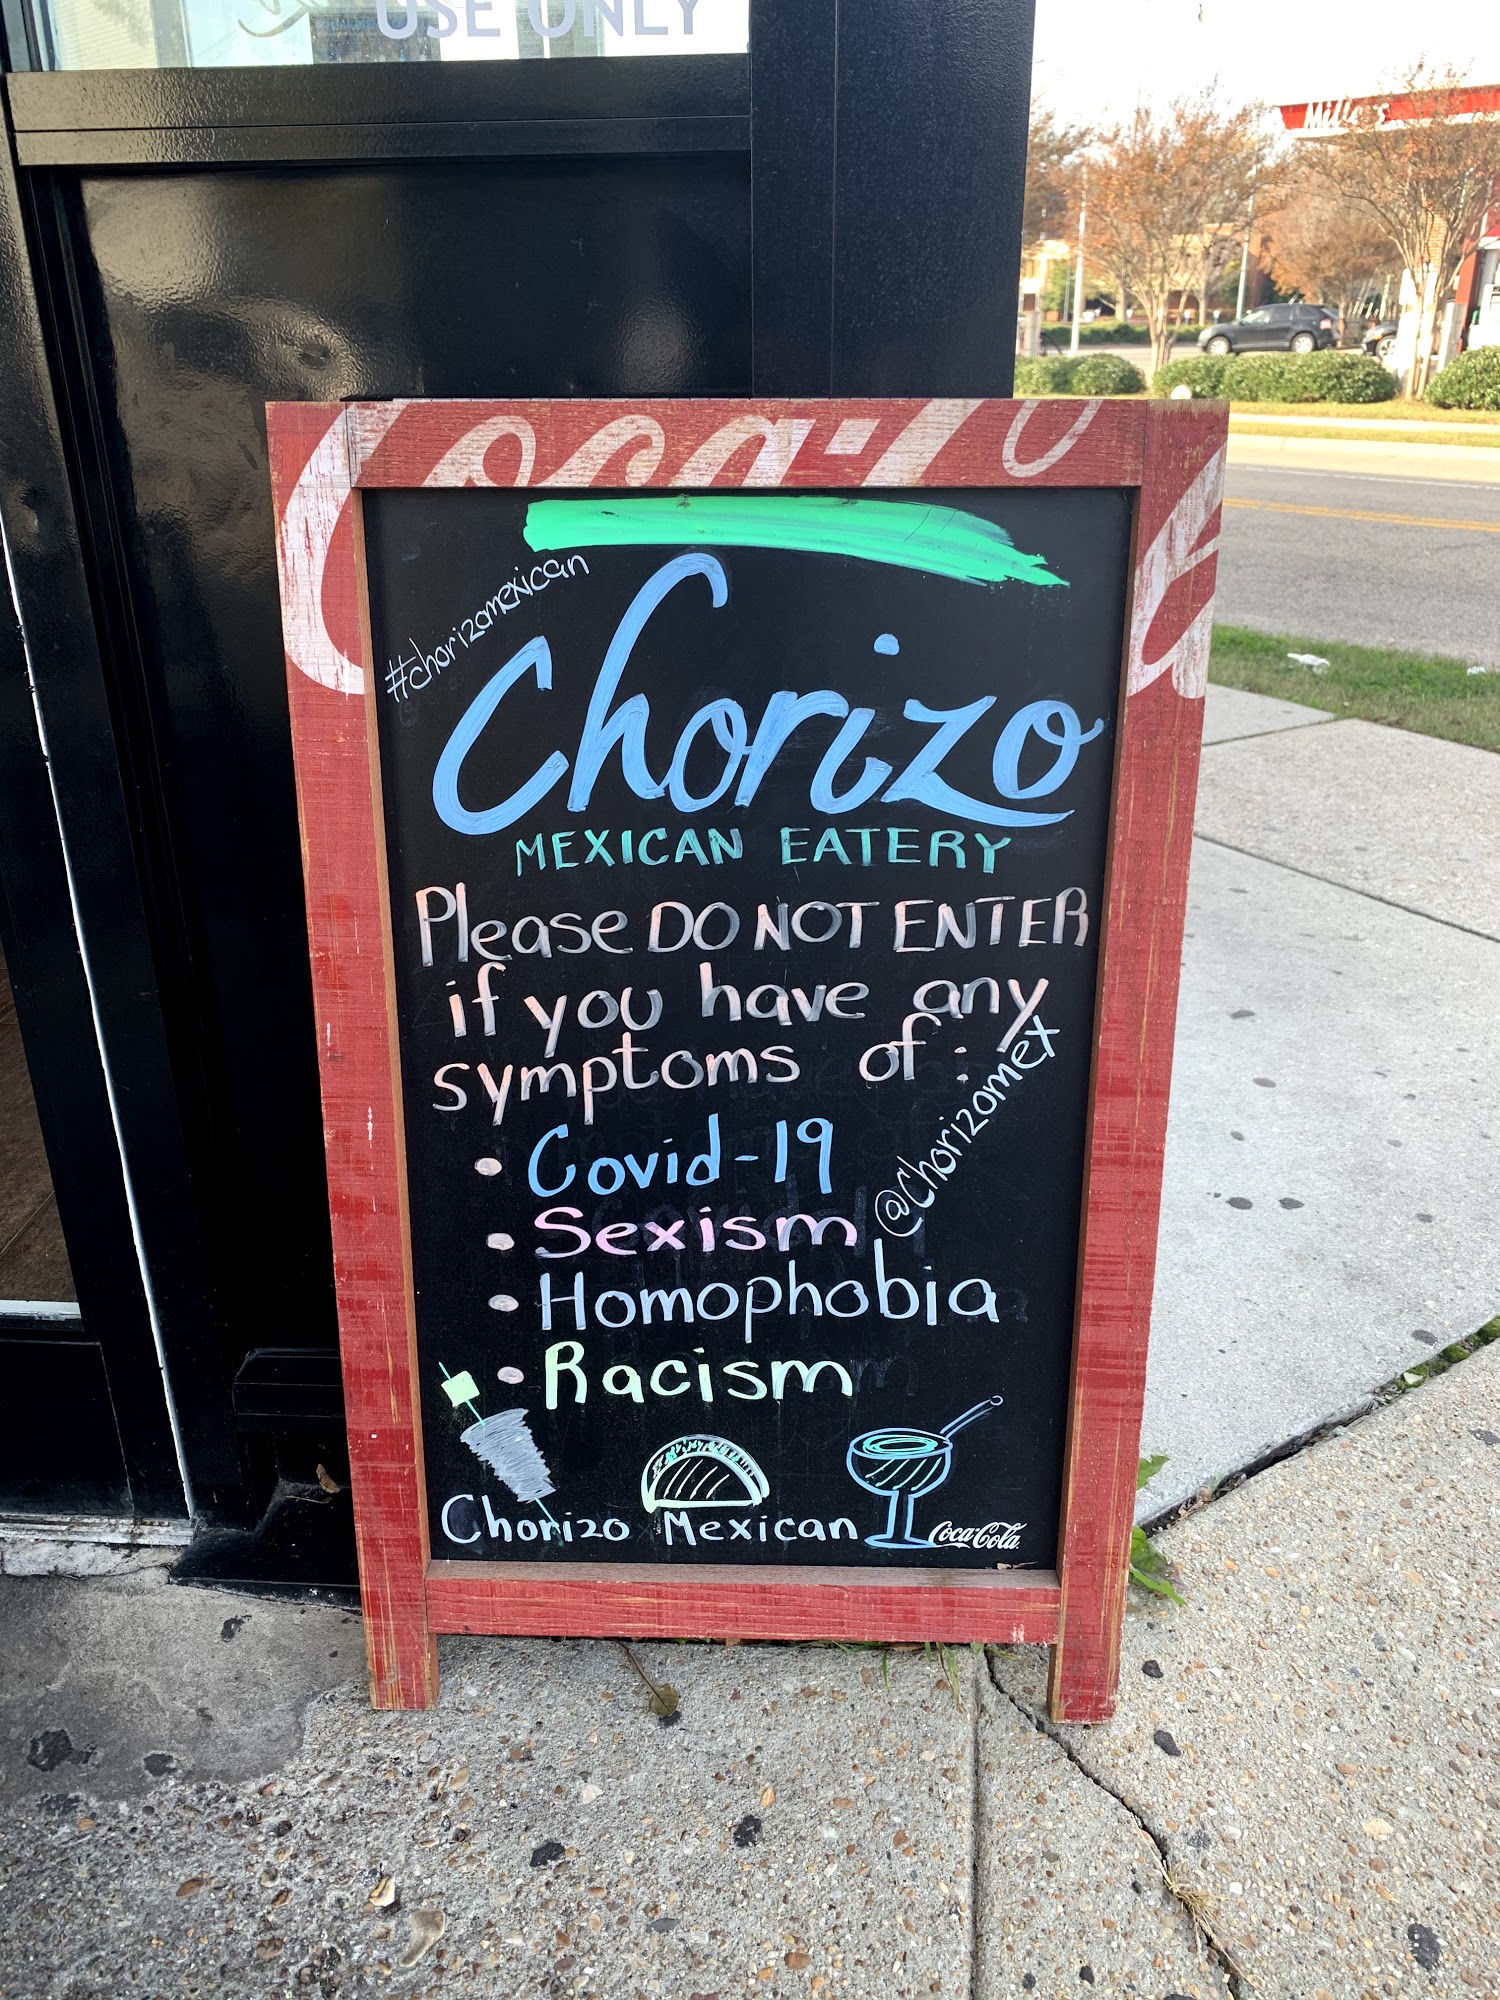 USE ONLY
Coca-Co
#chorizomexican
Chorizo
MEXICAN EATERY
Please DO NOT ENTER
if you have any
symptoms of:
@Chorizomex
• Covid-19
• Sexism
• Homophobia
• Racism
Chorizo Mexican
Coca-Cola